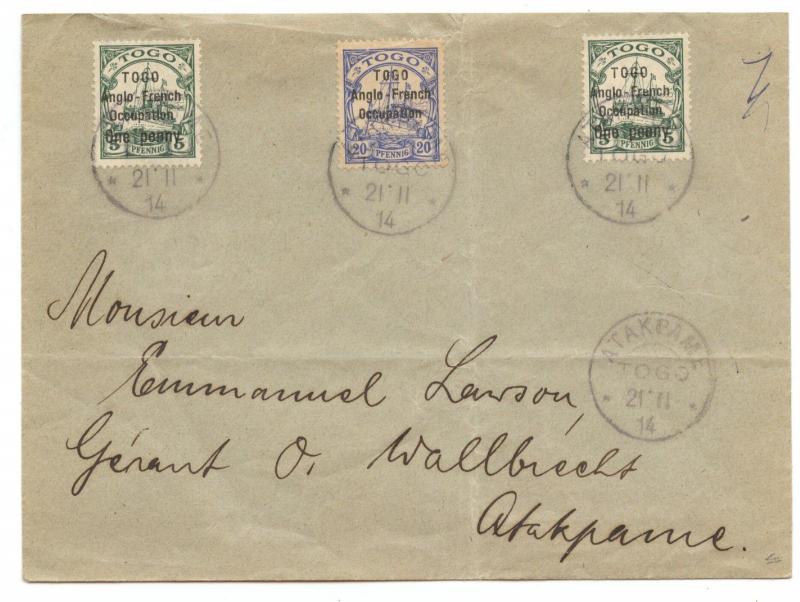 TOGO
TOGO
Anglo-French
Occupation
One penny
5 5
PFENNIG
TOGO
TOGO
Anglo-French
Occupation
20 20
PFENNIG
TOGO
TOGO
Anglo-French
Occupation
One penny
5 5
PFENNIG
* 21.11 *
14
TOGO
* 21.11 *
14
TOGO
* 21.11 *
14
Monsieur
Emmanuel Lawson,
Gérant O. Wallbrecht
Atakpame.
ATAKPAME
TOGO
* 21.11 *
14